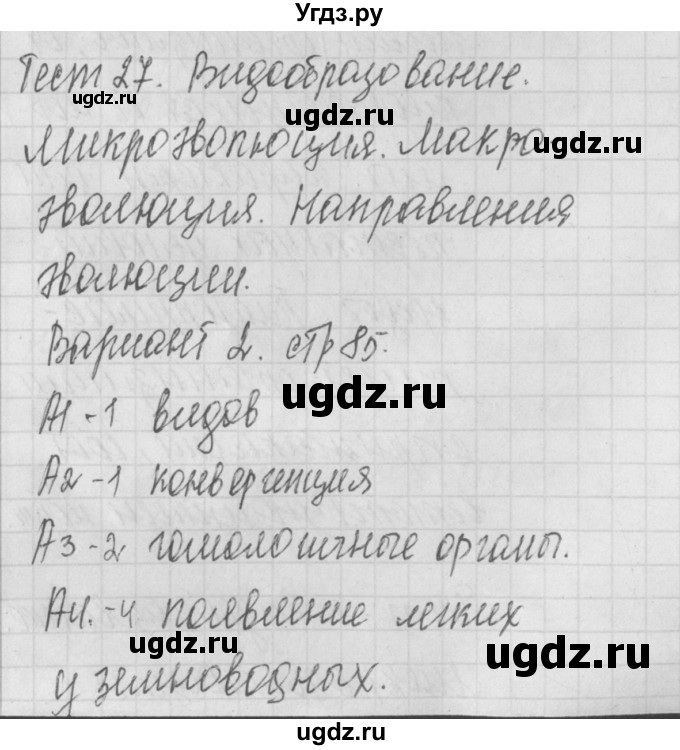 Угдз.ру
Тест 27. Видообразование.
ugdz.ru
ugdz.ru
Микроэволюция. Макро
ugdz.ru
эволюция. Направления
эволюции.
Вариант 2. стр 85.
ugdz.ru
А1 - 1 видов
А2 - 1 конвергенция
А3 - 2 гомологичные органы.
А4. - 4 появление легких
ugdz.ru
ugdz.ru
у земноводных.
ugdz.ru